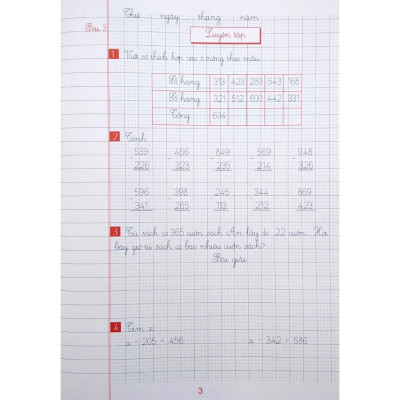 Thứ ngày tháng năm
Bài 3
Luyện tập
1 Viết số thích hợp vào ô trống theo mẫu
Số hạng 313 423 280 543 168
Số hạng 321 512 600 442 331
Tổng 634
2 Tính
539 466 849 569 948
- - - - -
226 323 235 214 326
596 398 245 344 869
- - - - -
341 265 113 212 423
3 Tủ sách có 365 cuốn sách An lấy đi 22 cuốn Hỏi
bây giờ tủ sách có bao nhiêu cuốn sách?
Bài giải
4 Tìm x
x - 205 = 456 x - 342 = 586
3